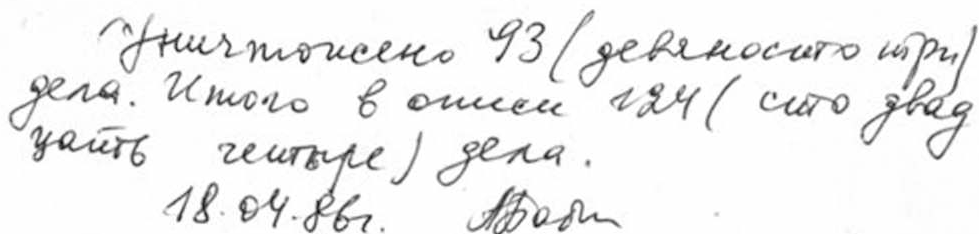 Уничтожено 93 (девяносто три)
дела. Итого в описи 124 (сто двад
цать четыре) дела.
18.04.86г.